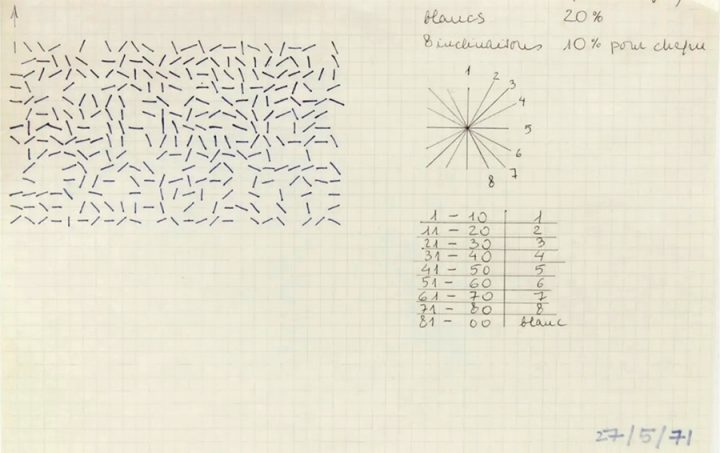 blancs 20%
8 inclinaisons 10% pour chacune
1
2
3
4
5
6
7
8
1 - 10 1
11 - 20 2
21 - 30 3
31 - 40 4
41 - 50 5
51 - 60 6
61 - 70 7
71 - 80 8
81 - 00 blanc
27/5/71